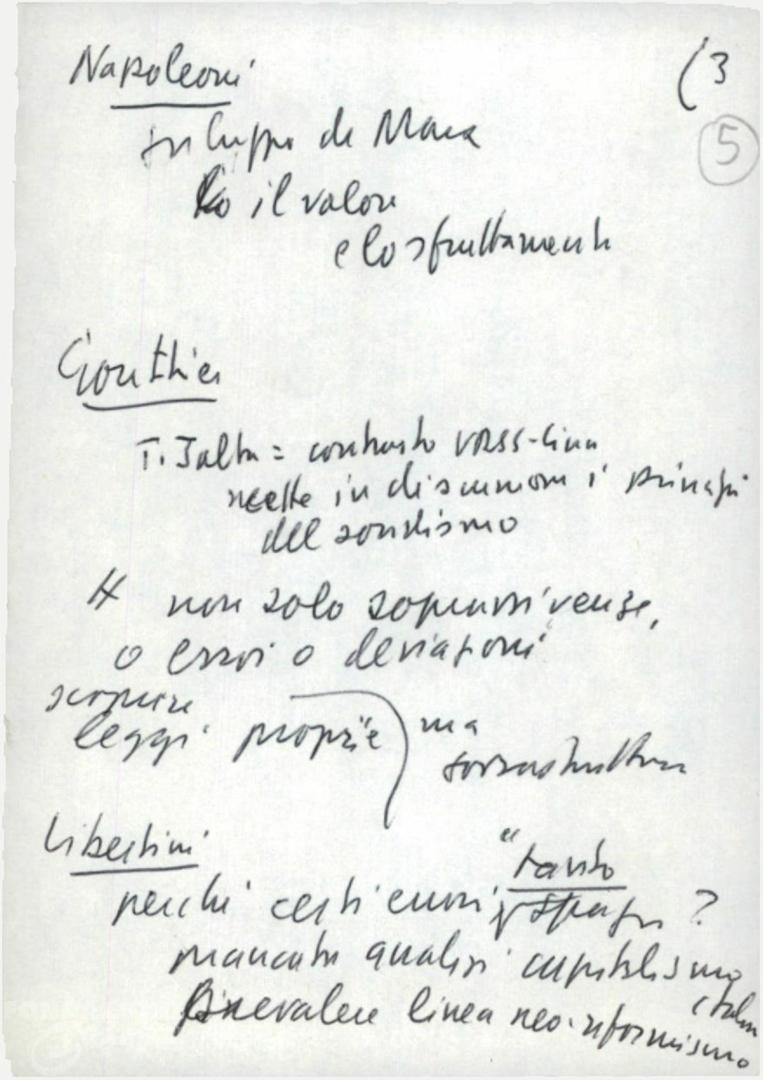 Napoleoni (3
5
sviluppo di Marx
il valore
e lo sfruttamento
Gouthier
T. Jalta = contrasto URSS-Cina
mette in discussioni i principi
del socialismo
non solo sopravvivenze,
o errori o deviazioni
scoprire
leggi proprie) ma
sovrastruttura
Libertini
perché certi errori, "tanto
spazio ?
mancata analisi capitalismo
italiano
prevalere linea neo-riformismo